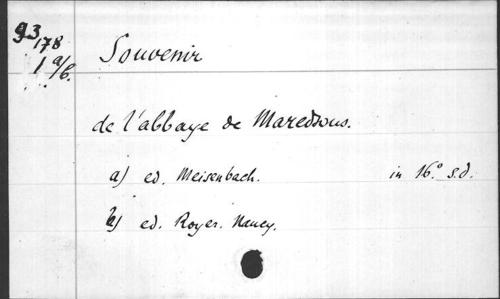 93
178
1 a/b.
Souvenir
de l'abbaye de Maredsous.
a) ed. Meisenbach. in 16° s.d.
b) ed. Royer. Nancy.